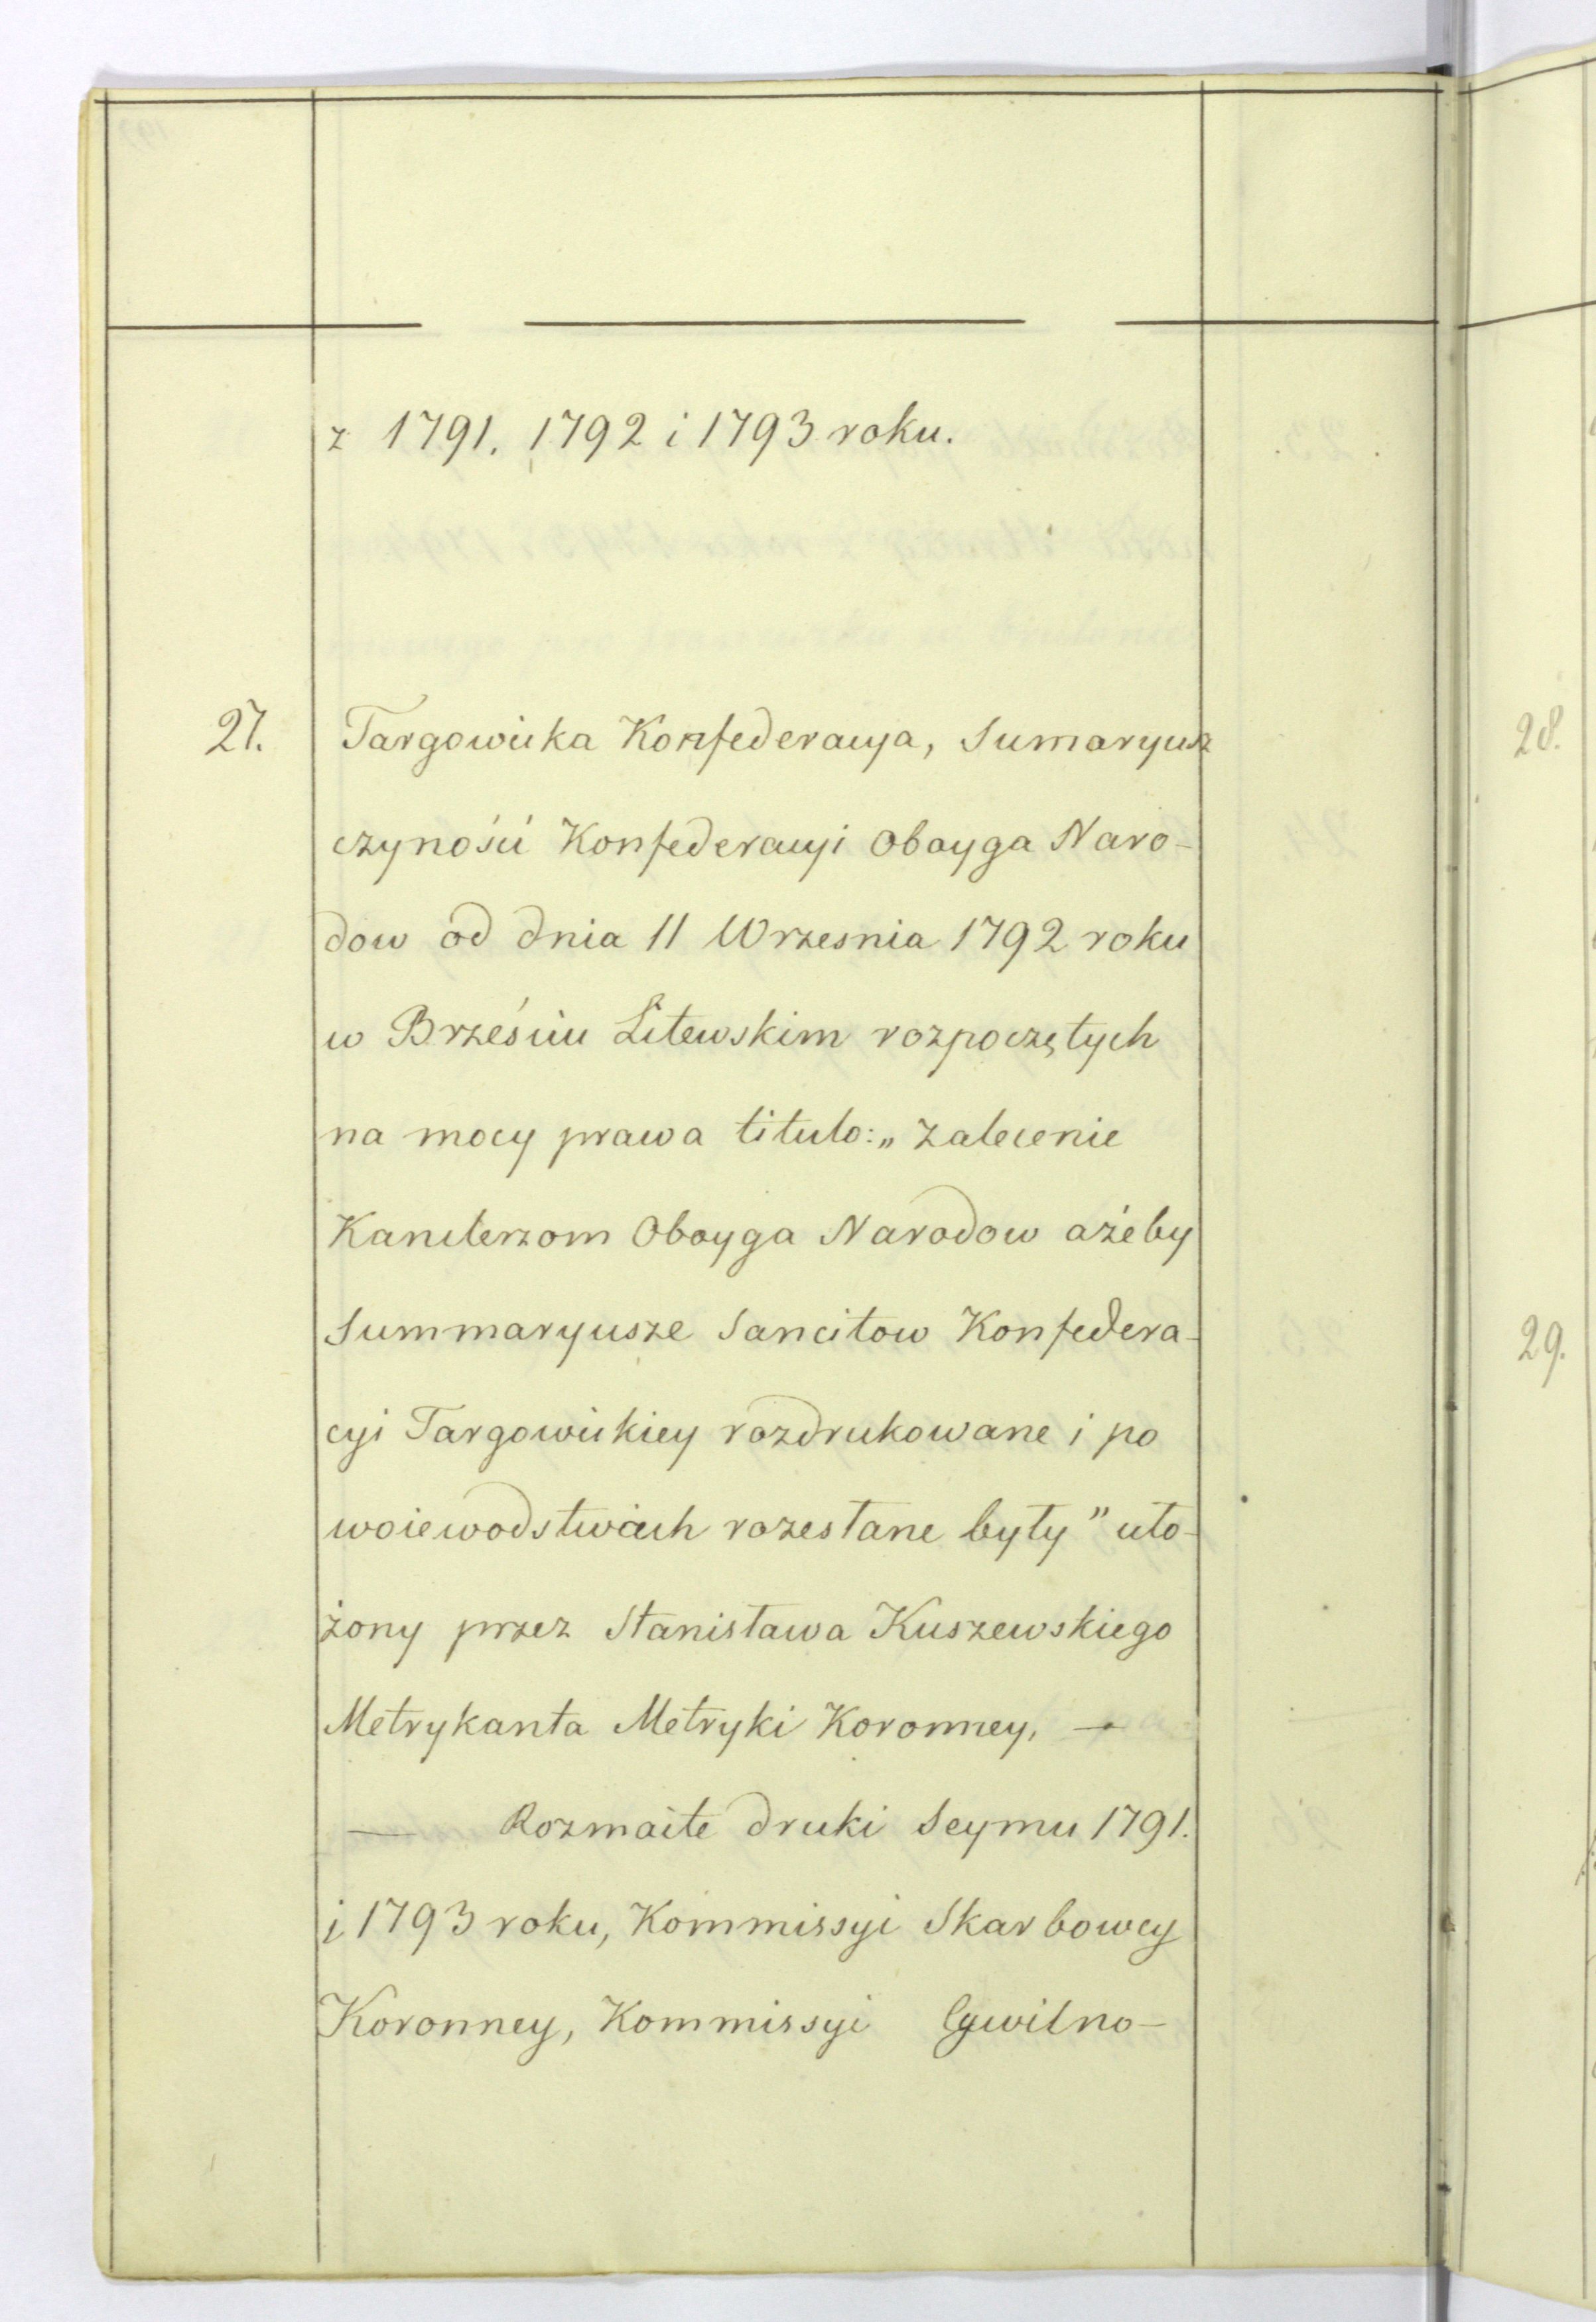 z 1791. 1792 i 1793 roku.
27. Targowicka Konfederacya, Sumaryusz
czyności Konfederacyi Oboyga Naro-
dow od dnia 11 Wrzesnia 1792 roku
w Brześciu Litewskim rozpoczętych
na mocy prawa titulo: „Zalecenie
Kanclerzom Oboyga Narodow ażeby
Summaryusze Sancitow Konfedera-
cyi Targowickiey rozdrukowane i po
woiewodstwach rozesłane były" uło-
żony przez Stanisława Kuszewskiego
Metrykanta Metryki Koronney, —
— Rozmaite druki Seymu 1791.
i 1793 roku, Kommissyi Skarbowey
Koronney, Kommissyi Cywilno-
28.
29.